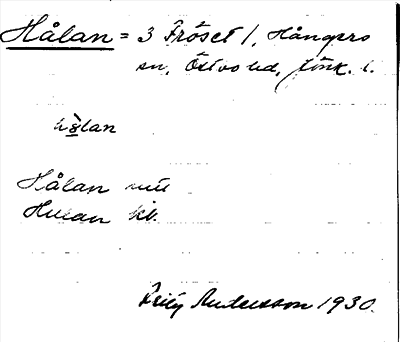 Hålan = 3 Fröset 1, Hångers
sn, Östbo hd, Jönk. l.
hålan
Hålan mtl
Hulan kb.
Andersson 1930.